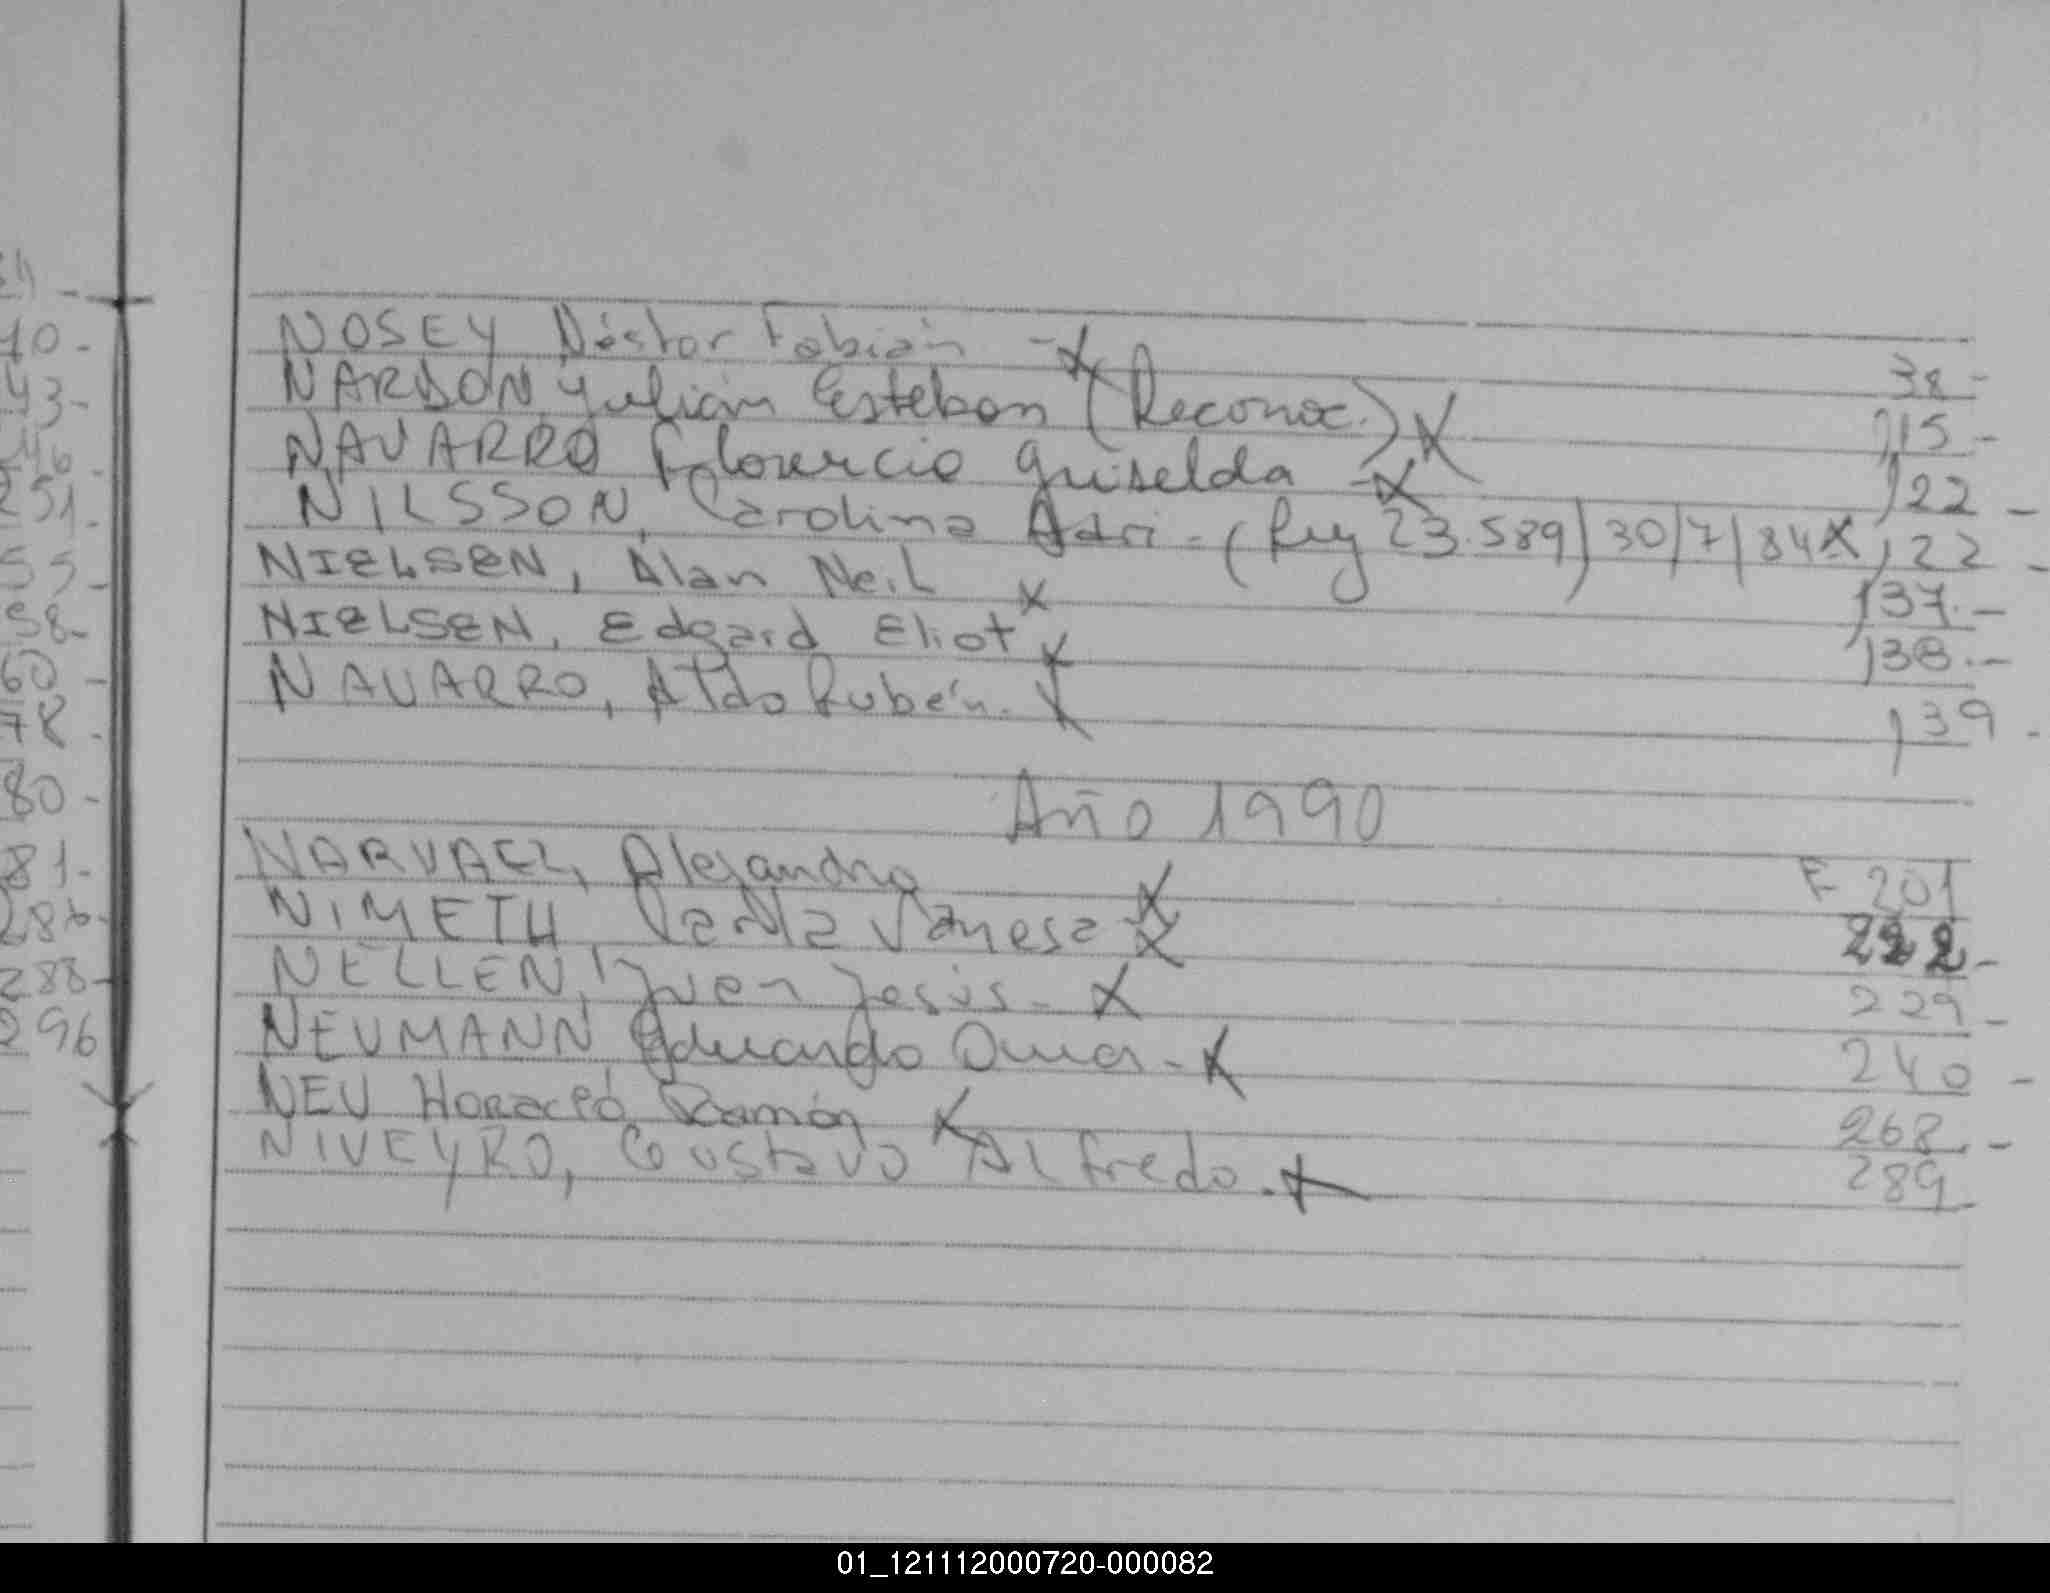 NOSEY Néstor Fabián - X 38 -
NARDON, Julián Esteban (Reconoc.) X 115 -
NAVARRO Florencio Griselda - X 122 -
NILSSON, Carolina Adri - (Ley 23.589) 30/7/84 X 122 -
NIELSEN, Alan Neil X 137.-
NIELSEN, Edgard Eliot X 138.-
NAVARRO, Aldo Rubén. X 139 -
Año 1990
NARVAEZ, Alejandro X F 201
NIMETH Carla Vanesa X 222 -
NELLEN, Juan Jesús - X 229 -
NEUMANN Eduardo Omar - X 240 -
NEU Horacio Ramón X 268 -
NIVEYRO, Gustavo Alfredo. X 289 -
40 -
43 -
46 -
251 -
55 -
58 -
60 -
78 -
80 -
81 -
286 -
288 -
296
01_121112000720-000082